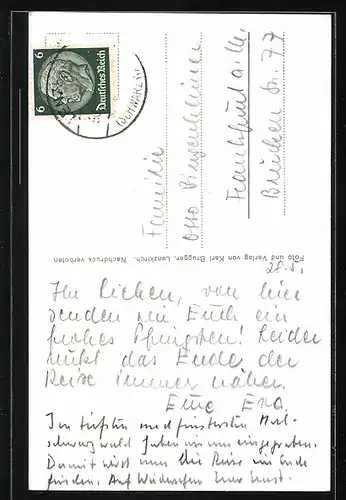 6 Deutsches Reich 6
(SCHWARZW.)
Familie
Otto
Frankfurt a. M.
Brücken Str. 77
Foto und Verlag von Karl Brugger, Lenzkirch. Nachdruck verboten
28.5.
Ihr Lieben, von hier
senden wir Euch ein
frohes Pfingsten! Leider
rückt das Ende der
Reise immer näher.
Eure
Im tiefsten und finstersten Hoch-
schwarzwald haben wir uns eingegraben.
Damit wird nun die Reise ein Ende
finden. Auf Wiedersehen Euer Ernst.